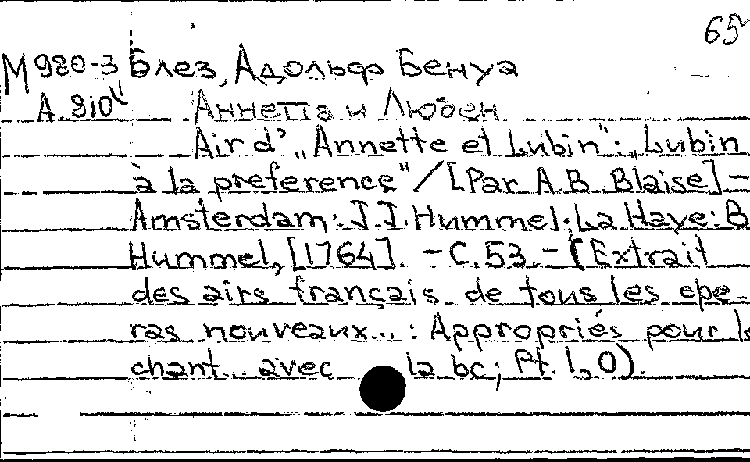 65
М 980-3 Блез, Адольф Бенуа
А 910 Аннетта и Любен
Air d' „Annette et Lubin": „Lubin
à la preference" / [Par A.B. Blaise] –
Amsterdam: J.J. Hummel; La Haye: B.
Hummel, [1764]. – С. 53. – (Extrait
des airs français de tous les ope-
ras nouveaux...: Appropriés pour le
chant... avec la bc; Pt. 1,0).